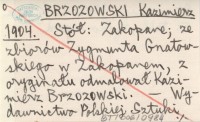 BRZOZOWSKI Kazimierz
1904. Stół: Zakopane, ze
zbiorów Zygmunta Gnatow-
skiego w Zakopanem, z
oryginału odmalował Kazi-
mierz Brzozowski. – Wy-
dawnictwo Polskiej Sztuki.